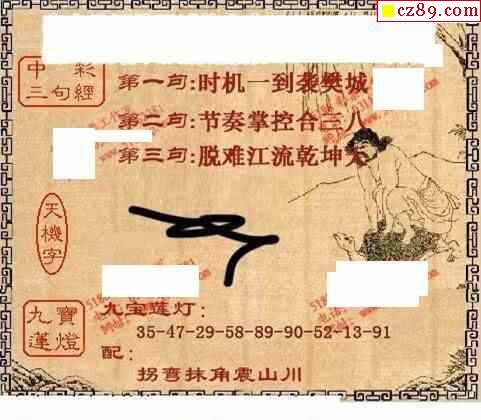 cz89.com
中彩
三句經
第一句:时机一到袭樊城
第二句:节奏掌控合三八
第三句:脱难江流乾坤大
天機字
九寶蓮燈
九宝莲灯:
35-47-29-58-89-90-52-13-91
配:
拐弯抹角震山川